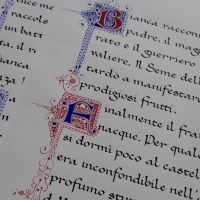 uce me
raccols
un batt
ta, il ri
Bianca raccon
padre, il mag
rato e il guerriero
valiere. Il Seme dell
tardò a manifestare
prodigiosi frutti.
Finalmente il fra
nacque. Per qualc
si dormì poco al castel
era inconfondibile nell'
profumo stu